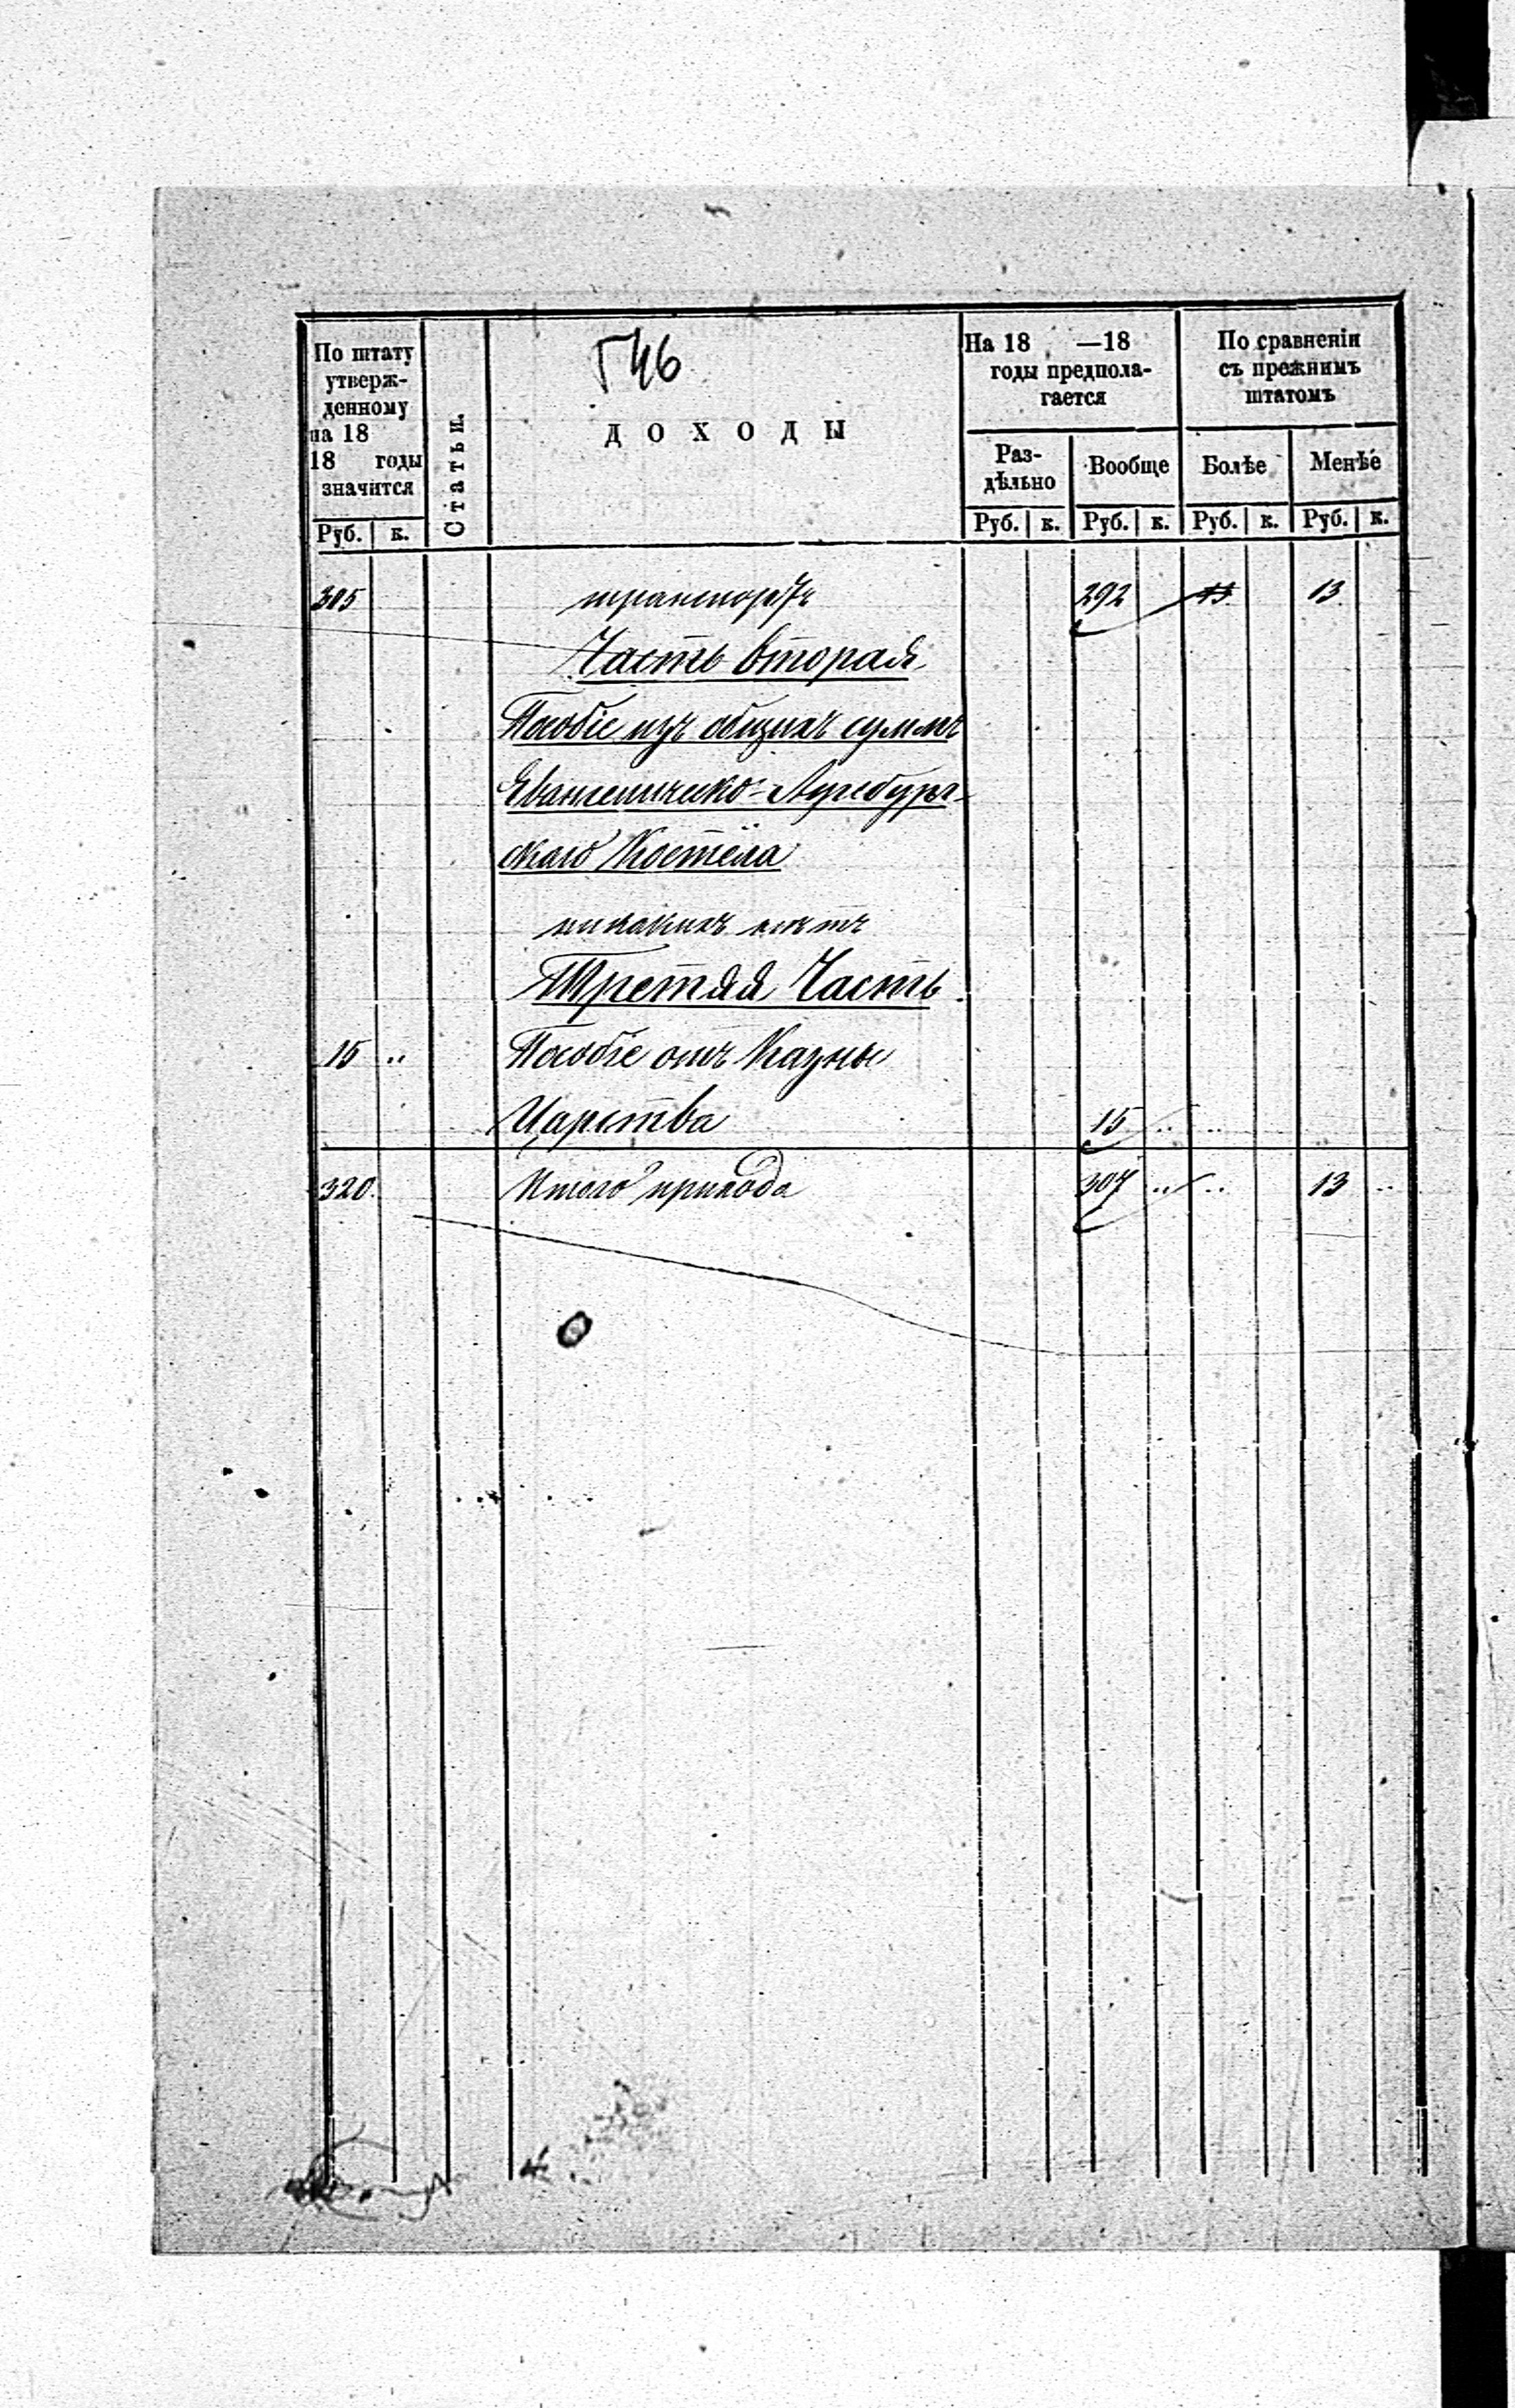 По штату
утверж-
денному
на 18
18 годы
значится
Руб. к.
Статьи.
146
ДОХОДЫ
На 18 —18
годы предпола-
гается
Раз-
дѣльно
Вообще
Руб. к. Руб. к.
По сравненіи
съ прежнимъ
штатомъ
Болѣе Менѣе
Руб. к. Руб. к.
305 транспортъ 292 13 13
Часть вторая
Пособіе изъ общихъ суммъ
Евангелическо-Аугсбург-
скаго Костёла
никакихъ нѣтъ
Третяя Часть
15 .. Пособіе отъ Казны
Царства 15 .. ..
320. Итого прихода 307 .. .. 13 ..